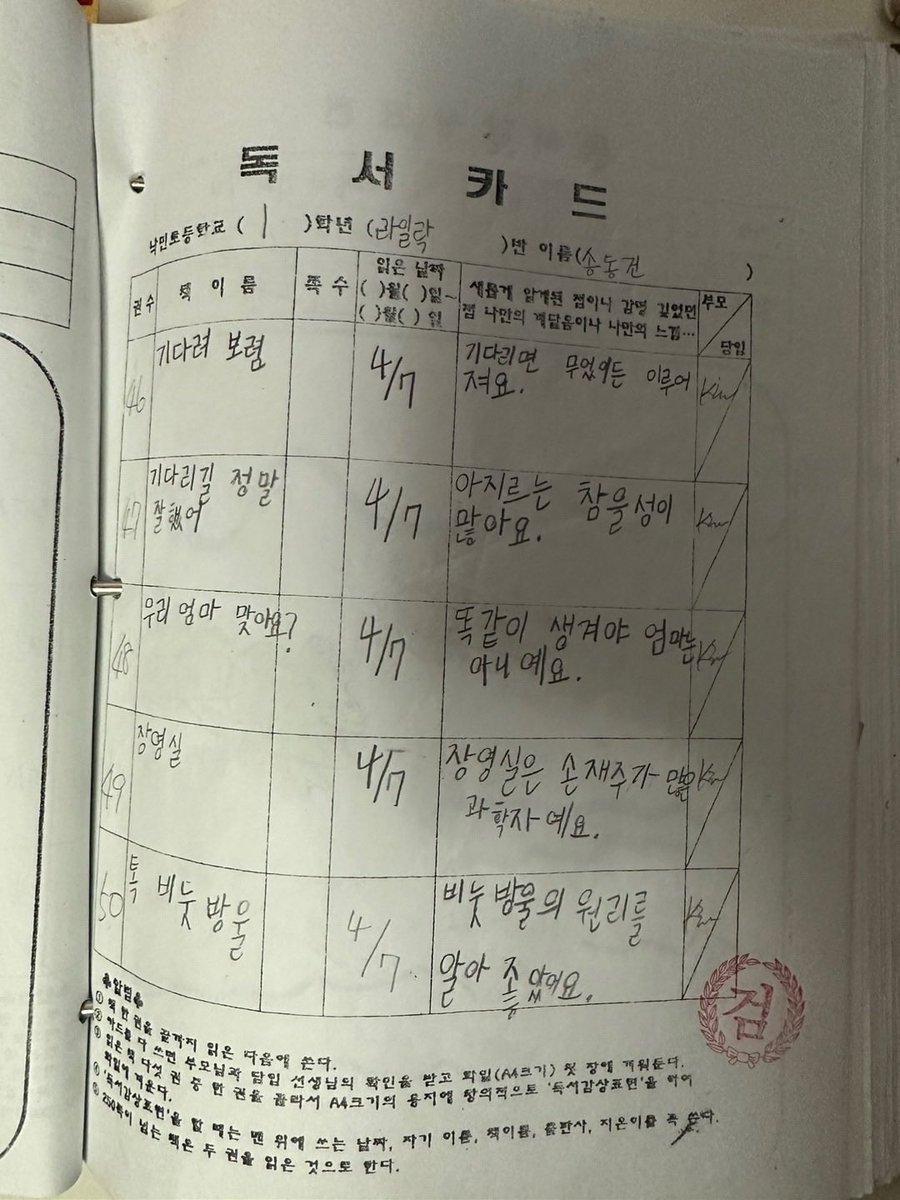 독서카드
낙민초등학교 ( 1 )학년 (라일락 )반 이름(송동건 )
권수
책 이름
쪽 수
읽은 날짜
( )월( )일~
( )월( )일
새롭게 알게된 점이나 감명 깊었던
점 나만의 깨달음이나 나만의 느낌…
부모
담임
46
기다려 보렴
4/7
기다리면 무엇이든 이루어
져요.
Kim
47
기다리길 정말
잘했어
4/7
아지르는 참을성이
많아요.
48
우리 엄마 맞아요?
4/7
똑같이 생겨야 엄마는
아니예요.
49
장영실
4/7
장영실은 손재주가 많은
과학자예요.
50
톡 비눗방울
4/7
비눗방울의 원리를
알아 좋았어요.
검
♣알림♣
① 책 한 권을 끝까지 읽은 다음에 쓴다.
② 카드를 다 쓰면 부모님과 담임 선생님의 확인을 받고 화일(A4크기) 첫 장에 끼워둔다.
③ 읽은 책 다섯 권 중 한 권을 골라서 A4크기의 용지에 창의적으로 '독서감상표현'을 하여
화일에 끼운다.
④ '독서감상표현'을 할 때는 맨 위에 쓰는 날짜, 자기 이름, 책이름, 출판사, 지은이를 꼭 쓴다.
⑤ 250쪽이 넘는 책은 두 권을 읽은 것으로 한다.